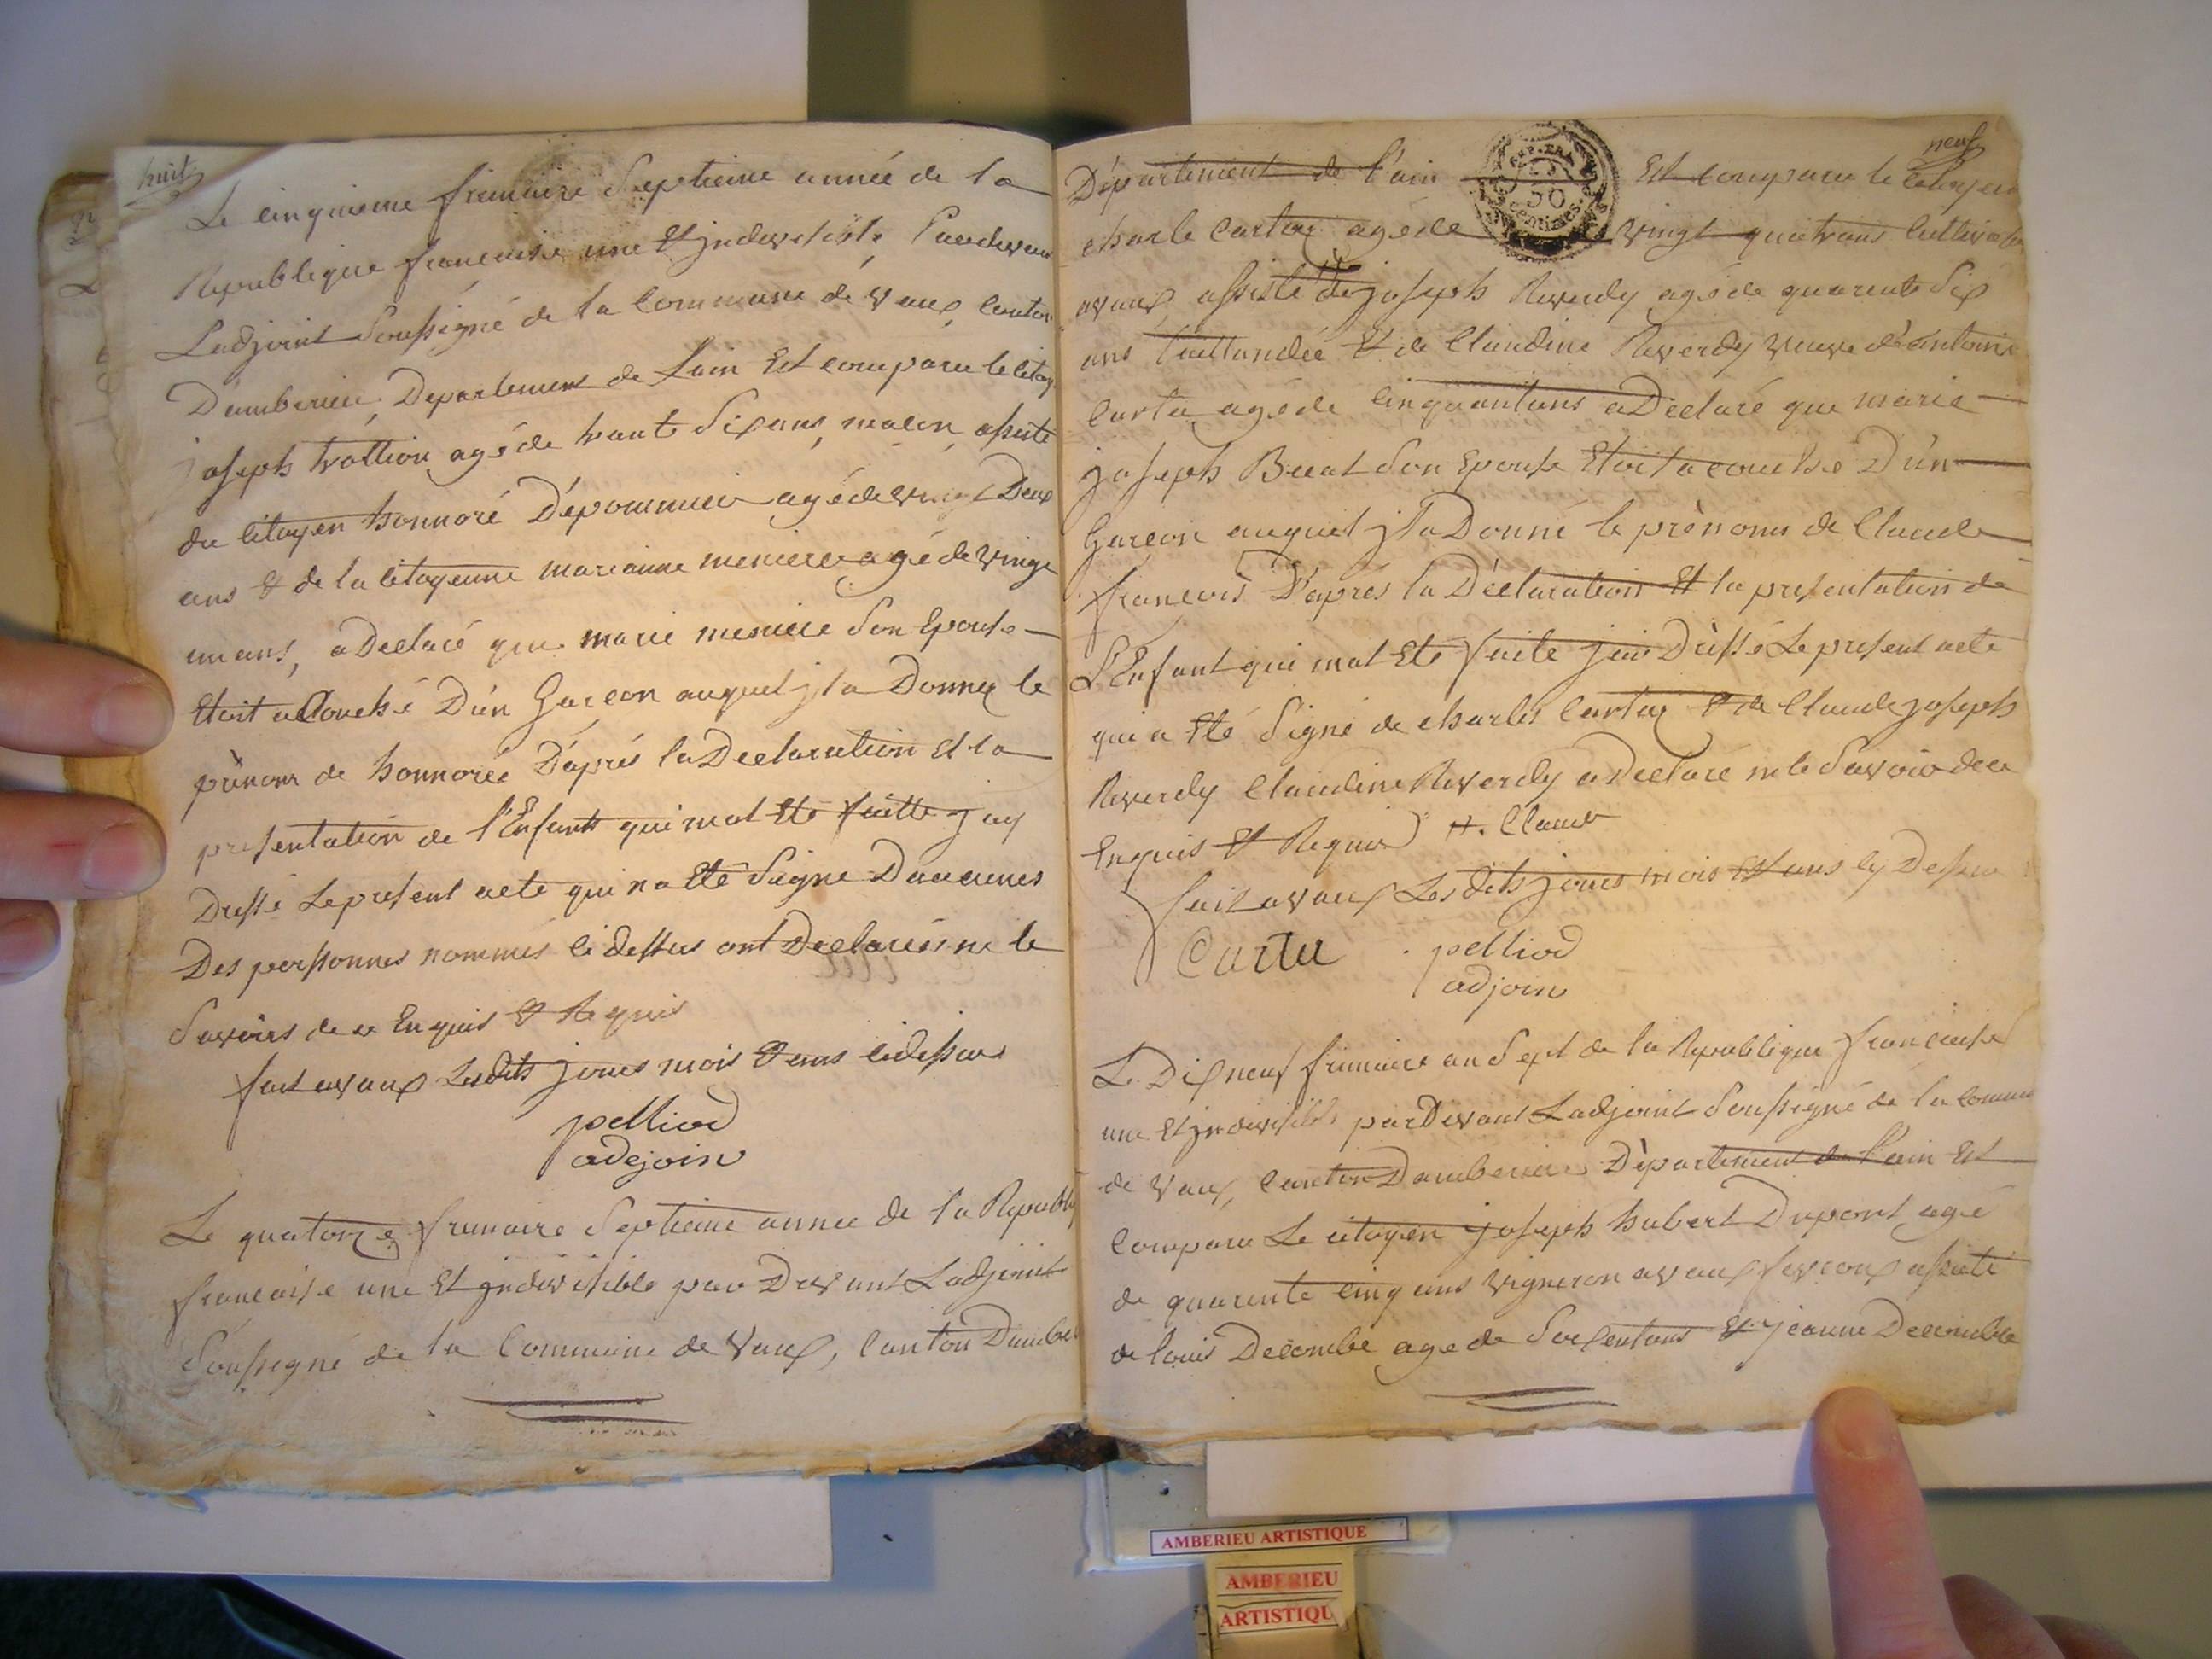 huit
Le cinquieme frimaire Septieme année de la
Republique francaise une Et jndivisible, Pardevant
Ladjoint Soussigné de la Commune de Vaux, Canton
Damberieu, Departement de Lain Est comparu le citoy
joseph trottion agé de trante Six ans, macon, assisté
du Citoyen honnoré Dépommier agé de vingt Deux
ans & de la Citoyenne marianne meniere agé de vingt
un ans, a Declaré que marie meniere Son Epouse
Etoit acCouché D'un Garcon auquel jl a Donnez le
prènom de honnoréé D'aprés la Declaration Et la
presentation de l'Enfant qui mat Ete faitte jay
Dressé Le present acte qui na Eté Signe Daucunes
Des perssonnes nommés cidessus ont Declarés ne le
Savoirs de ce Enquis & Requis
fait a vaux Lesdits jours mois & ans cidessus
pelliod
adejoin
Le quatorze frimaire Septieme annee de la Republiq
francaise une Et jndivisible par Devant Ladjoint
Soussigné de la Commune de Vaux, Canton Dambe
neuf
Département de l'ain Est comparu le Citoyen
REP. FRA
50
centimes.
charle Cartaz agé de vingt quatrans Cultivateur
a vaux, assisté de joseph Reverdy agé de quarente Six
ans & de Claudine Reverdy veuve d'antoine
Carta agé de Cinquantans a Déclaré que marie
joseph Buat Son Epouse Etoit acouchée D'un
Garcon auquel jl a Donné le prènoms de Claude
francois D'aprés la Déclaration Et la presentation de
L'Enfant qui mat Eté faite jai Dréssé Le present acte
qui a Eté Signé de charles Cartaz & de Claude joseph
Reverdy Claudine Reverdy a Déclaré ne le Savoir de ce
Enquis & Requis
fait a vaux Les dits jours mois Et ans cy Dessus
Carta pelliod
adjoin
Le Dix neuf frimaire an Sept de la Republique francaise
une Et jndivisible par Devant Ladjoint Soussigné de la Commu
de Vaux, Canton Damberieu Dèpartement de l'ain Est
Comparu Le citoyen joseph hubert Dupont agé
de quarente cinq ans vigneron a vaux fevroux assisté
de louis Decombe age de Soixentans & jeanne Decombe
AMBERIEU ARTISTIQUE
AMBERIEU
ARTISTIQU